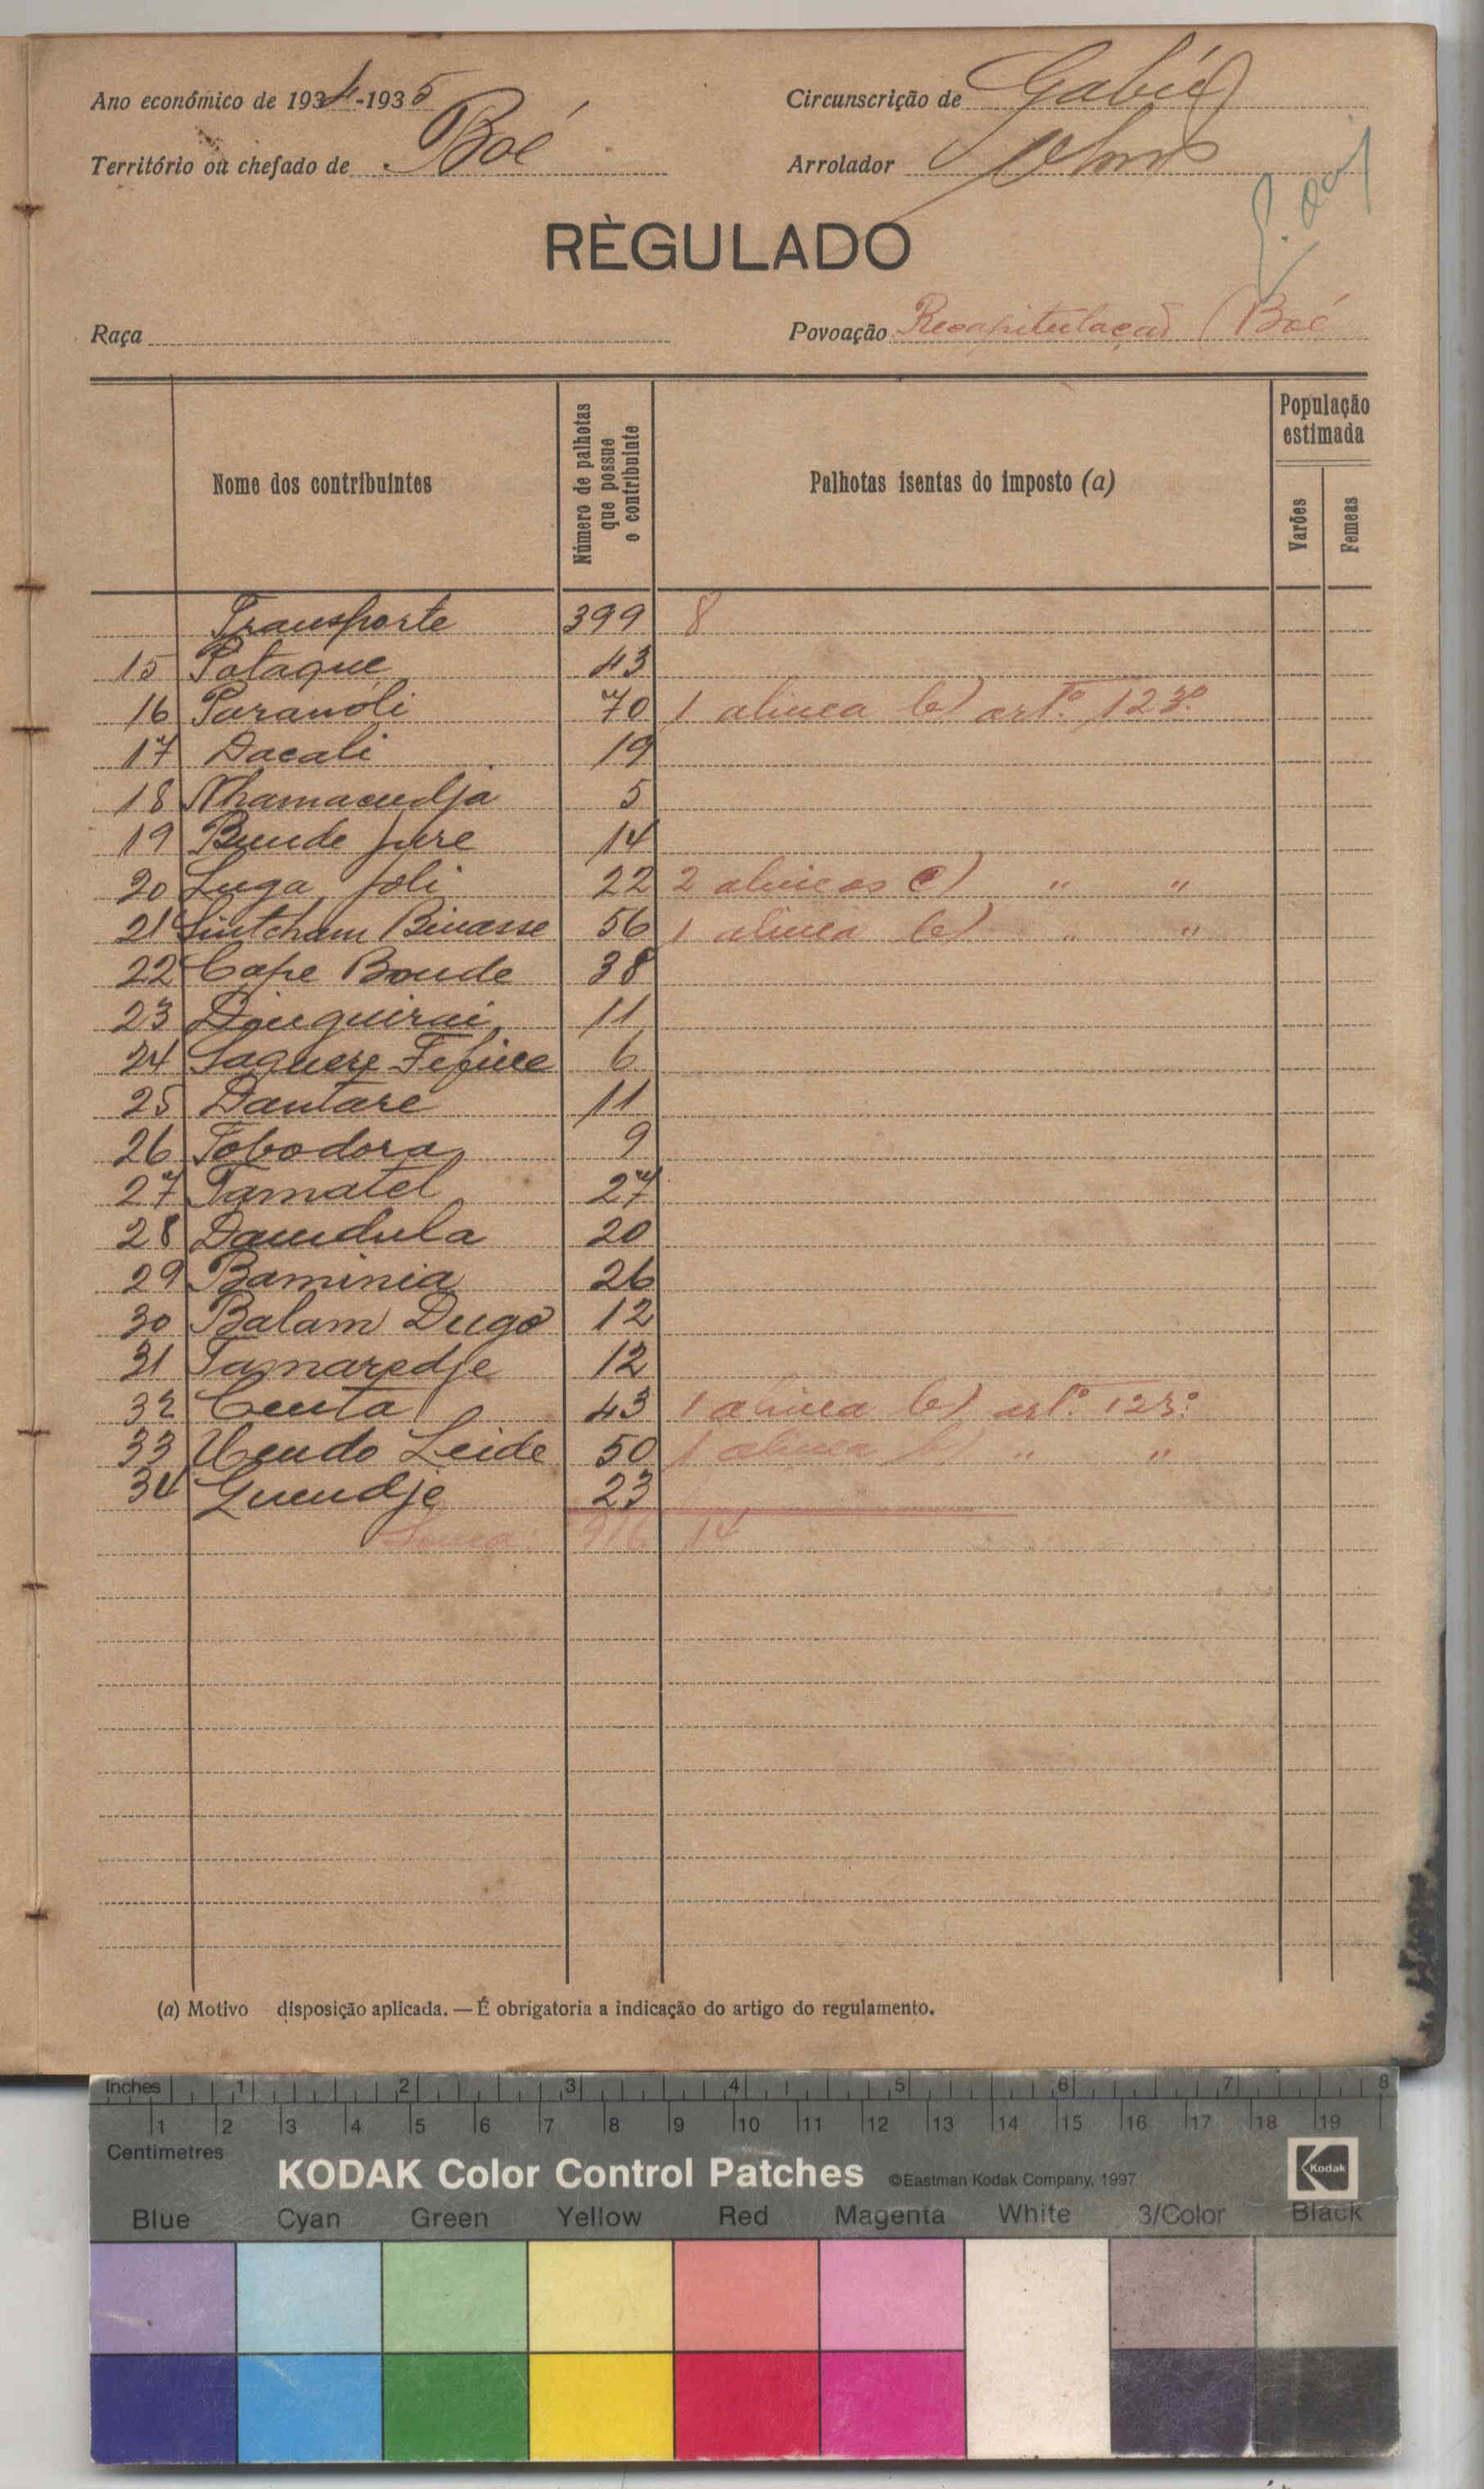 Ano económico de 1934-1935
Circunscrição de Gabú
Território ou chefado de Boé
Arrolador
RÈGULADO
Raça
Povoação Recapitulação (Boé
Nome dos contribuintes
Número de palhotas que possue o contribuinte
Palhotas isentas do imposto (a)
População estimada
Varões
Femeas
Transporte 399 8
15 Pataque 43
16 Paranoli 70 1 alinea b) artº. 123º
17 Dacali 19
18 Nhamacudja 5
19 Bunde Jure 14
20 Luga Joli 22 2 alineas c) " "
21 Sintcham Binasse 56 1 alinea b) " "
22 Cape Bonde 38
23 Dinguirai 11
24 Saguere Fefine 6
25 Dantare 11
26 Tobodora 9
27 Tamatel 27
28 Dandula 20
29 Baminia 26
30 Balam Dugo 12
31 Tamaredje 12
32 Ceuta 43 1 alinea b) artº. 123º
33 Uendo Leide 50 1 alinea b) " "
34 Guendje 23
Soma: 916 14
(a) Motivo disposição aplicada. — É obrigatoria a indicação do artigo do regulamento.
Inches 1 2 3 4 5 6 7 8
1 2 3 4 5 6 7 8 9 10 11 12 13 14 15 16 17 18 19
Centimetres
KODAK Color Control Patches ©Eastman Kodak Company, 1997 Kodak
Blue Cyan Green Yellow Red Magenta White 3/Color Black